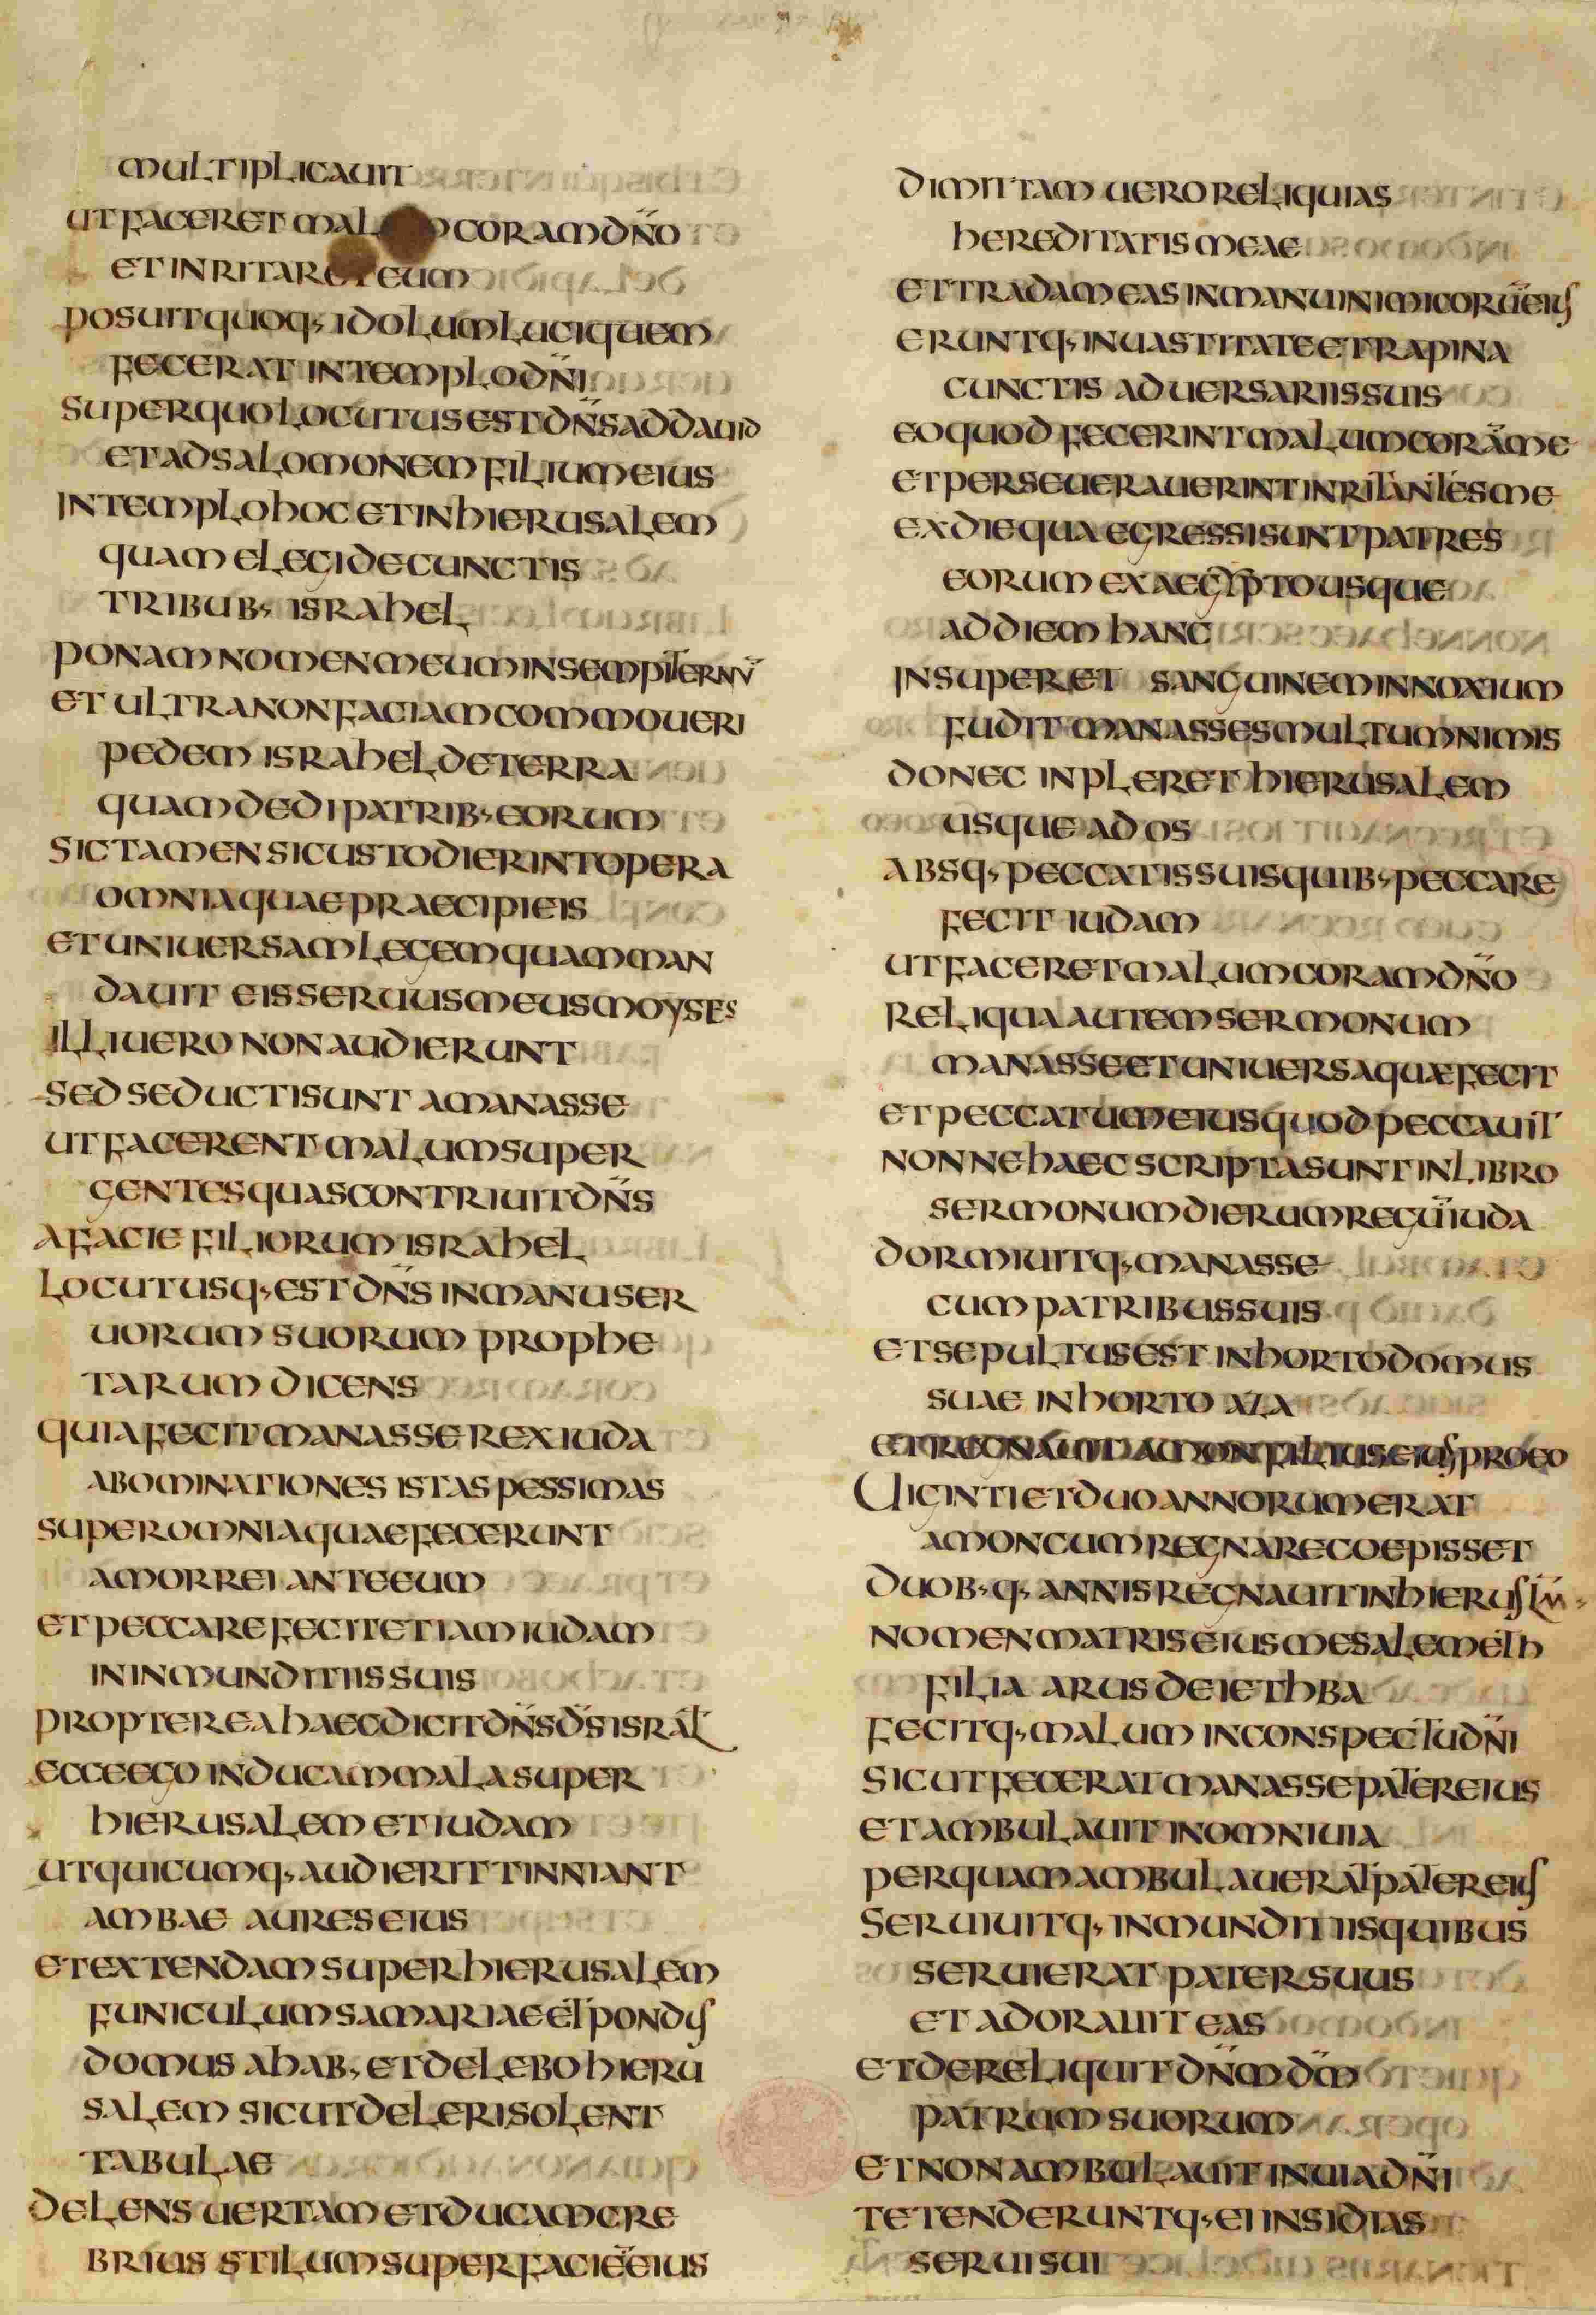 multiplicauit
ut faceret malum coram dño
et inritaret eum
posuit quoq; idolum luci quem
fecerat in templo dñi
super quo locutus est dñs ad dauid
et ad salomonem filium eius
in templo hoc et in hierusalem
quam elegi de cunctis
tribub; israhel
ponam nomen meum in sempiternũ
et ultra non faciam commoueri
pedem israhel de terra
quam dedi patrib; eorum
sic tamen si custodierint opera
omnia quae praecipi eis
et uniuersam legem quam man
dauit eis seruus meus moyses
illi uero non audierunt
sed seducti sunt a manasse
ut facerent malum super
gentes quas contriuit dñs
a facie filiorum israhel
locutusq; est dñs in manu ser
uorum suorum prophe
tarum dicens
quia fecit manasse rex iuda
abominationes istas pessimas
super omnia quae fecerunt
amorrei ante eum
et peccare fecit etiam iudam
in inmunditiis suis
propterea haec dicit dñs dš isrãl
ecce ego inducam mala super
hierusalem et iudam
ut quicumq; audierit tinniant
ambae aures eius
et extendam super hierusalem
funiculum samariae et pondus
domus ahab; et delebo hieru
salem sicut deleri solent
tabulae
delens uertam et ducam cre
brius stilum super faciẽ eius
dimittam uero reliquias
hereditatis meae
et tradam eas in manu inimicorũ eius
eruntq; in uastitate et rapina
cunctis aduersariis suis
eo quod fecerint malum corã me
et perseuerauerint inritantes me
ex die qua egressi sunt patres
eorum ex aegypto usque
ad diem hanc
insuper et sanguinem innoxium
fudit manasses multum nimis
donec inpleret hierusalem
usque ad os
absq; peccatis suis quib; peccare
fecit iudam
ut faceret malum coram dño
reliqua autem sermonum
manasse et uniuersa quæ fecit
et peccatum eius quod peccauit
nonne haec scripta sunt in libro
sermonum dierum regũ iuda
dormiuitq; manasse
cum patribus suis
et sepultus est in horto domus
suae in horto aza
et regnauit amon filius eius pro eo
Uiginti et duo annorum erat
amon cum regnare coepisset
duob; q; annis regnauit in hieruslm̃
nomen matris eius mesalemeth
filia arus de iethba
fecitq; malum in conspectu dñi
sicut fecerat manasse pater eius
et ambulauit in omni uia
per quam ambulauerat pater eius
seruiuitq; inmunditiis quibus
seruierat pater suus
et adorauit eas
et dereliquit dñm dm̃
patrum suorum
et non ambulauit in uia dñi
tetenderuntq; ei insidias
serui sui